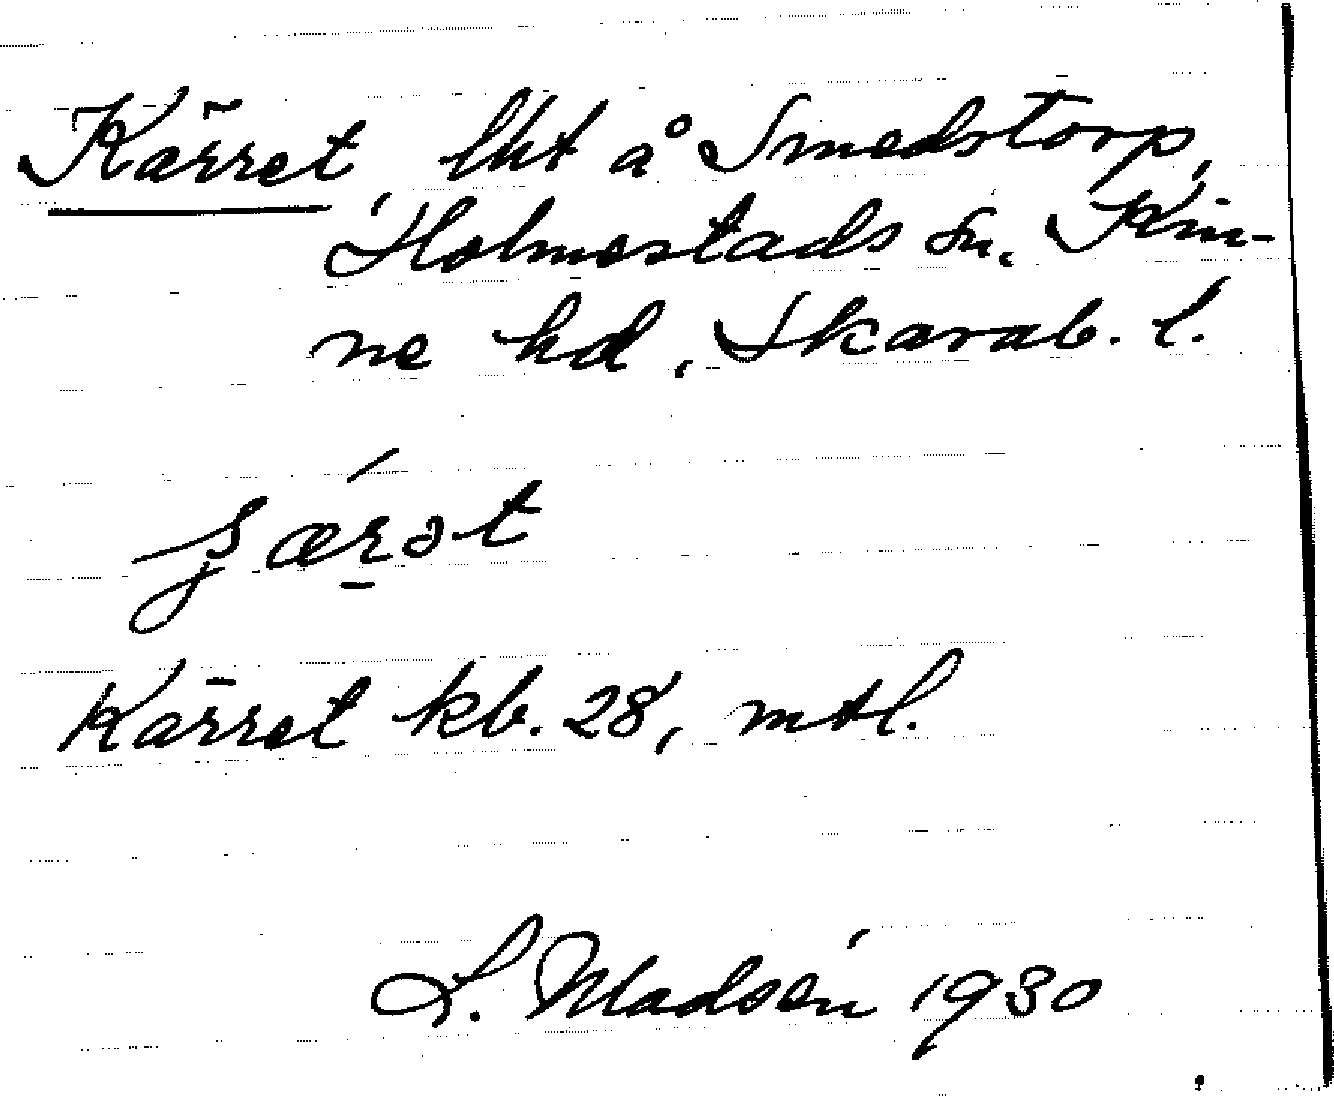 Kärret, lht å Smedstorp,
Holmestads sn, Kin-
ne hd, Skarab. l.
Kärret kb. 28, mtl.
L. Madsén 1930